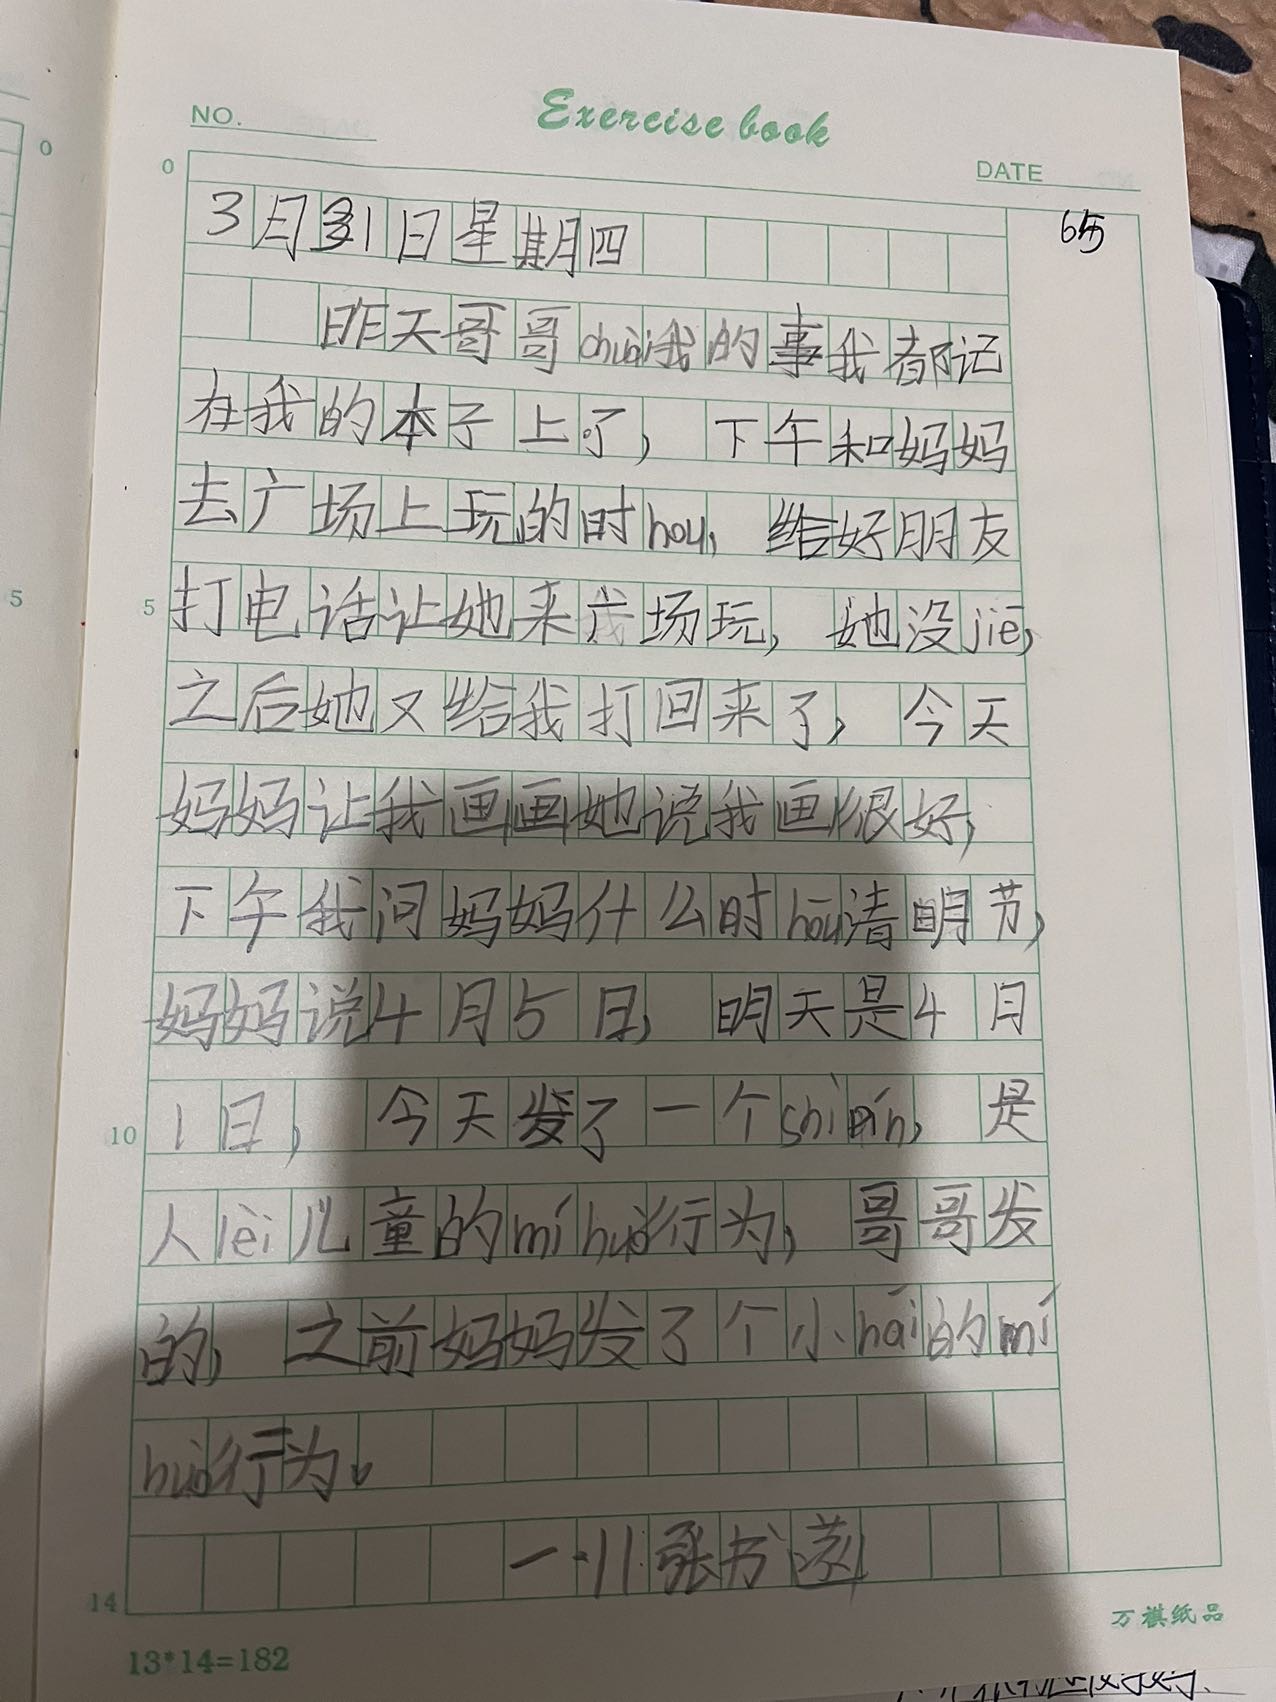 Exercise book
NO.
DATE
0
0
3月31日星期四
昨天哥哥chuài我的事我都记
在我的本子上了，下午和妈妈
去广场上玩的时hou，给好朋友
5
5
打电话让她来广场玩，她没jiē，
之后她又给我打回来了，今天
妈妈让我画画她说我画很好，
下午我问妈妈什么时hōu清明节，
妈妈说4月5日，明天是4月
10
1日，今天发了一个shì pín，是
人lèi儿童的mí huò行为，哥哥发
的，之前妈妈发了个小hái的mí
huò行为。
14
一.11张书
万祺纸品
13*14=182